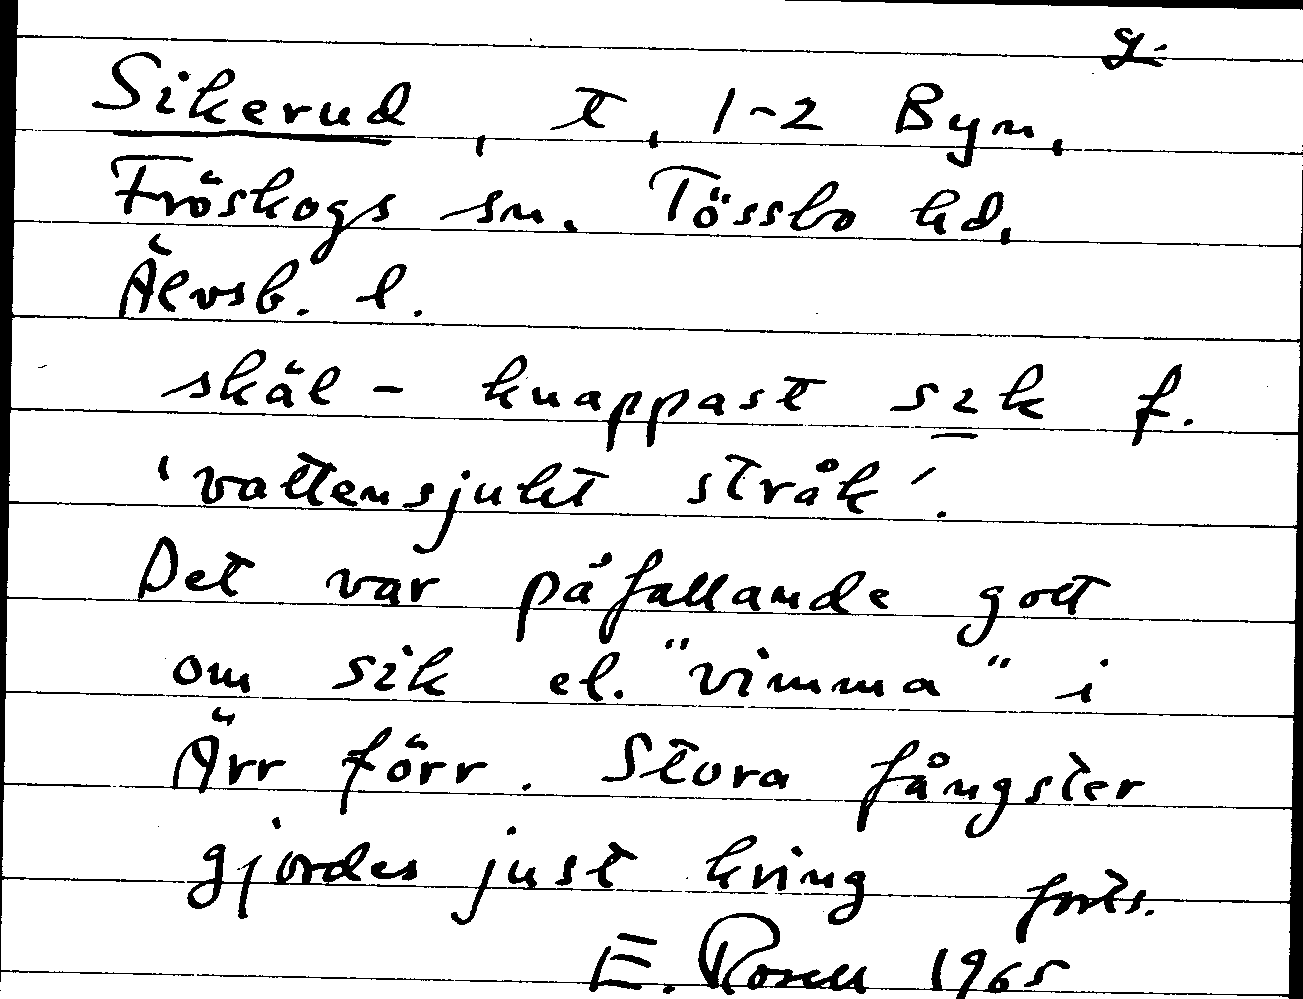 g.
Sikerud, t, 1-2 Byn,
Fröskogs sn. Tössbo hd,
Älvsb. l.
skäl - knappast sik f.
'vattensjukt stråk'.
Det var påfallande gott
om sik el. "vimma" i
Ärr förr. Stora fångster
gjordes just kring forts.
E. Rosell 1965